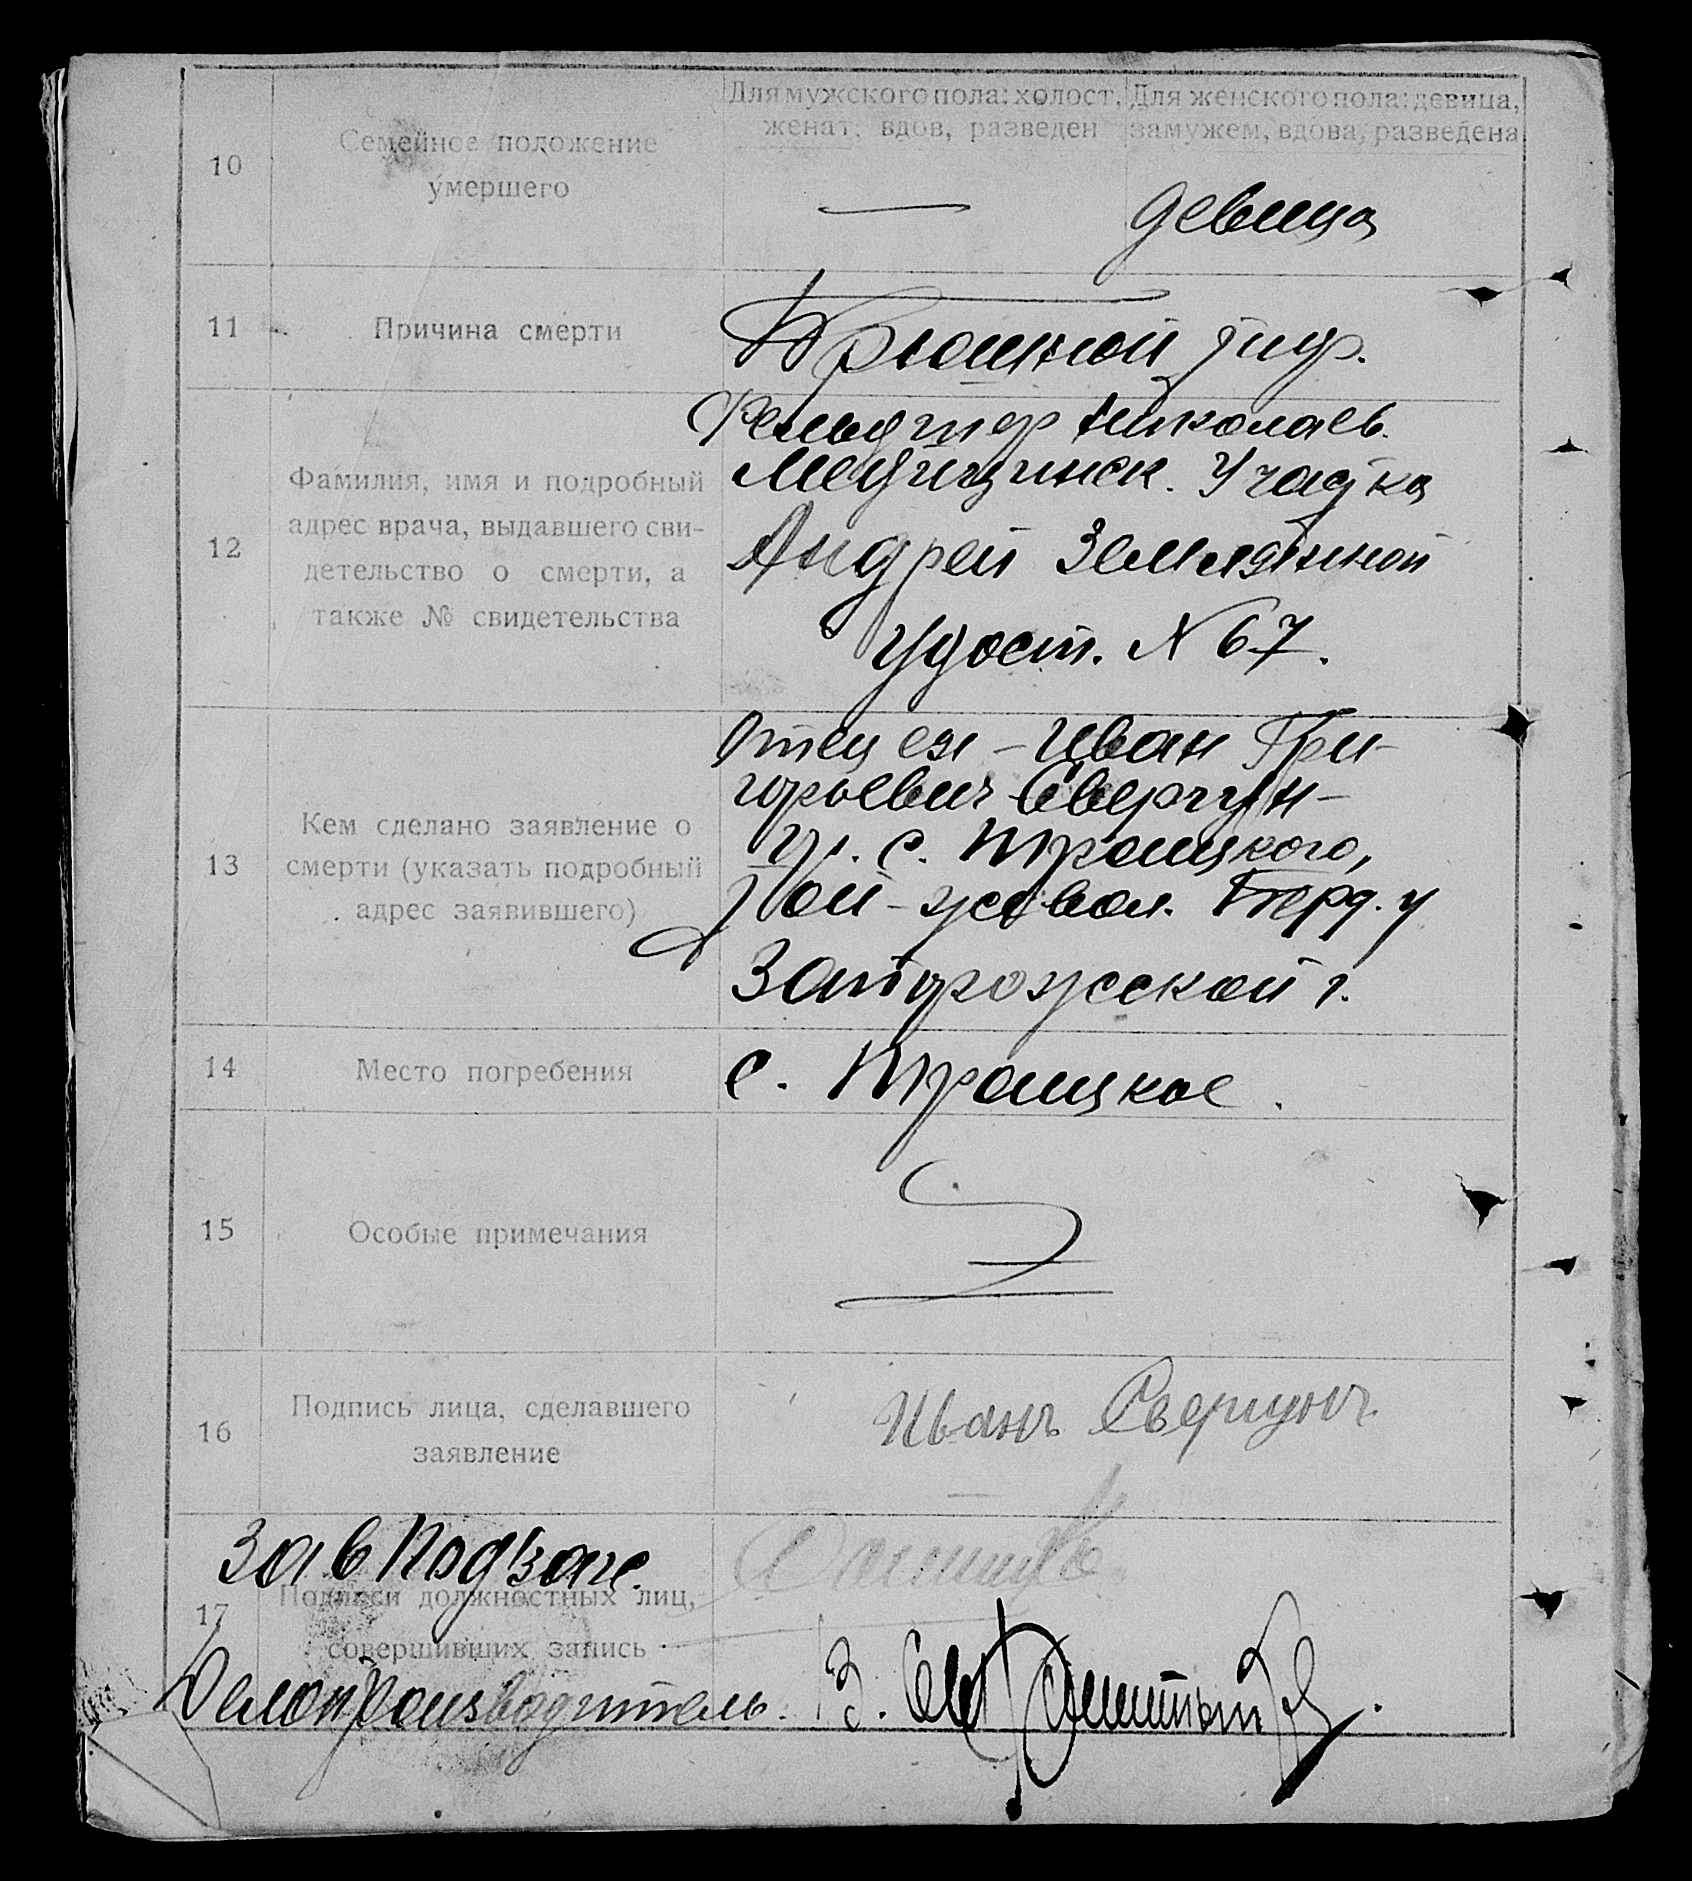 10
Семейное положение
умершего
Для мужского пола: холост,
женат, вдов, разведен
Для женского пола: девица,
замужем, вдова, разведена
—
девица
11
Причина смерти
Брюшной тиф.
12
Фамилия, имя и подробный
адрес врача, выдавшего сви-
детельство о смерти, а
также № свидетельства
Фельдшер Николаев.
Медицинск. Участка
Андрей Земляной
Удост. N 67.
13
Кем сделано заявление о
смерти (указать подробный
адрес заявившего)
Отец ея – Иван Гри-
горьевич Свергун –
гр. с. Троицкого,
той-же вол. Берд. у
Запорожской г.
14
Место погребения
с. Троицкое.
15
Особые примечания
16
Подпись лица, сделавшего
заявление
Иванъ Свергунъ
17
Зав Подзаг.
Подписи должностных лиц,
совершивших запись
Делопроизводитель.